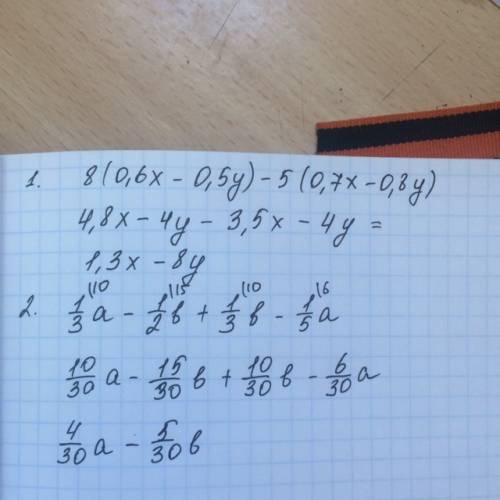 1. 8(0,6x - 0,5y) - 5(0,7x - 0,8y)
4,8x - 4y - 3,5x - 4y =
1,3x - 8y
2. 1/3 \10 a - 1/2 \15 в + 1/3 \10 в - 1/5 \6 a
10/30 a - 15/30 в + 10/30 в - 6/30 a
4/30 a - 5/30 в